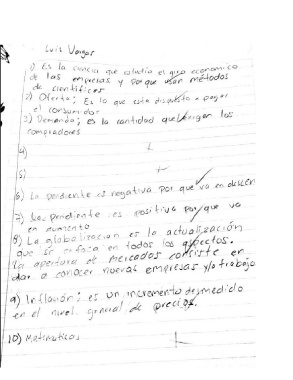 Luis Vargas
1) Es la ciencia que estudia el giro economico
de las empresas y porque usan métodos
de cientificos
2) Oferta; Es lo que esta dispuesto a pagar
el consumidor
3) Demanda; es la cantidad que exigen los
compradores
4)
5)
6) La pendiente es negativa por que va en descen
7) La pendiente es positiva por que va
en aumento
8) La globalizacion es la actualización
que se enfoca en todos los aspectos.
la apertura de mercados consiste en
dar a conocer nuevas empresas y/o trabajo
9) Inflación; es un incremento desmedido
en el nivel general de precios.
10) Matematicas